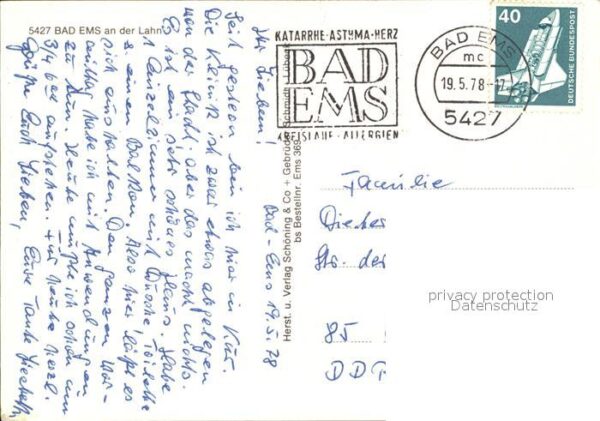 5427 BAD EMS an der Lahn
Bad-Ems 19.5.78
Ihr Lieben!
Seit gestern bin ich hier in Kur.
Die Klinik ist zwar etwas abgelegen
von der Stadt, aber das macht nichts.
Es ist ein sehr schönes Haus. Habe
1 Einzelzimmer mit Dusche, Toilette
u. einen Balkon. Also hier läßt es
sich aushalten. Den ganzen Vor-
mittag habe ich mit Anwendungen
zu tun. Heute mußte ich schon um
3/4 6 aufstehen. Für heute herzl.
Grüße Euch Lieben, Eure Tante
Herst. u. Verlag Schöning & Co + Gebrüder Schmidt
bs Bestellnr. Ems 369
KATARRHE-ASTHMA-HERZ
BAD
EMS
KREISLAUF-ALLERGIEN
BAD EMS
mc
19.5.78-17
5427
40
DEUTSCHE BUNDESPOST
Familie
Dieter
Str. der
85
DD
privacy protection
Datenschutz